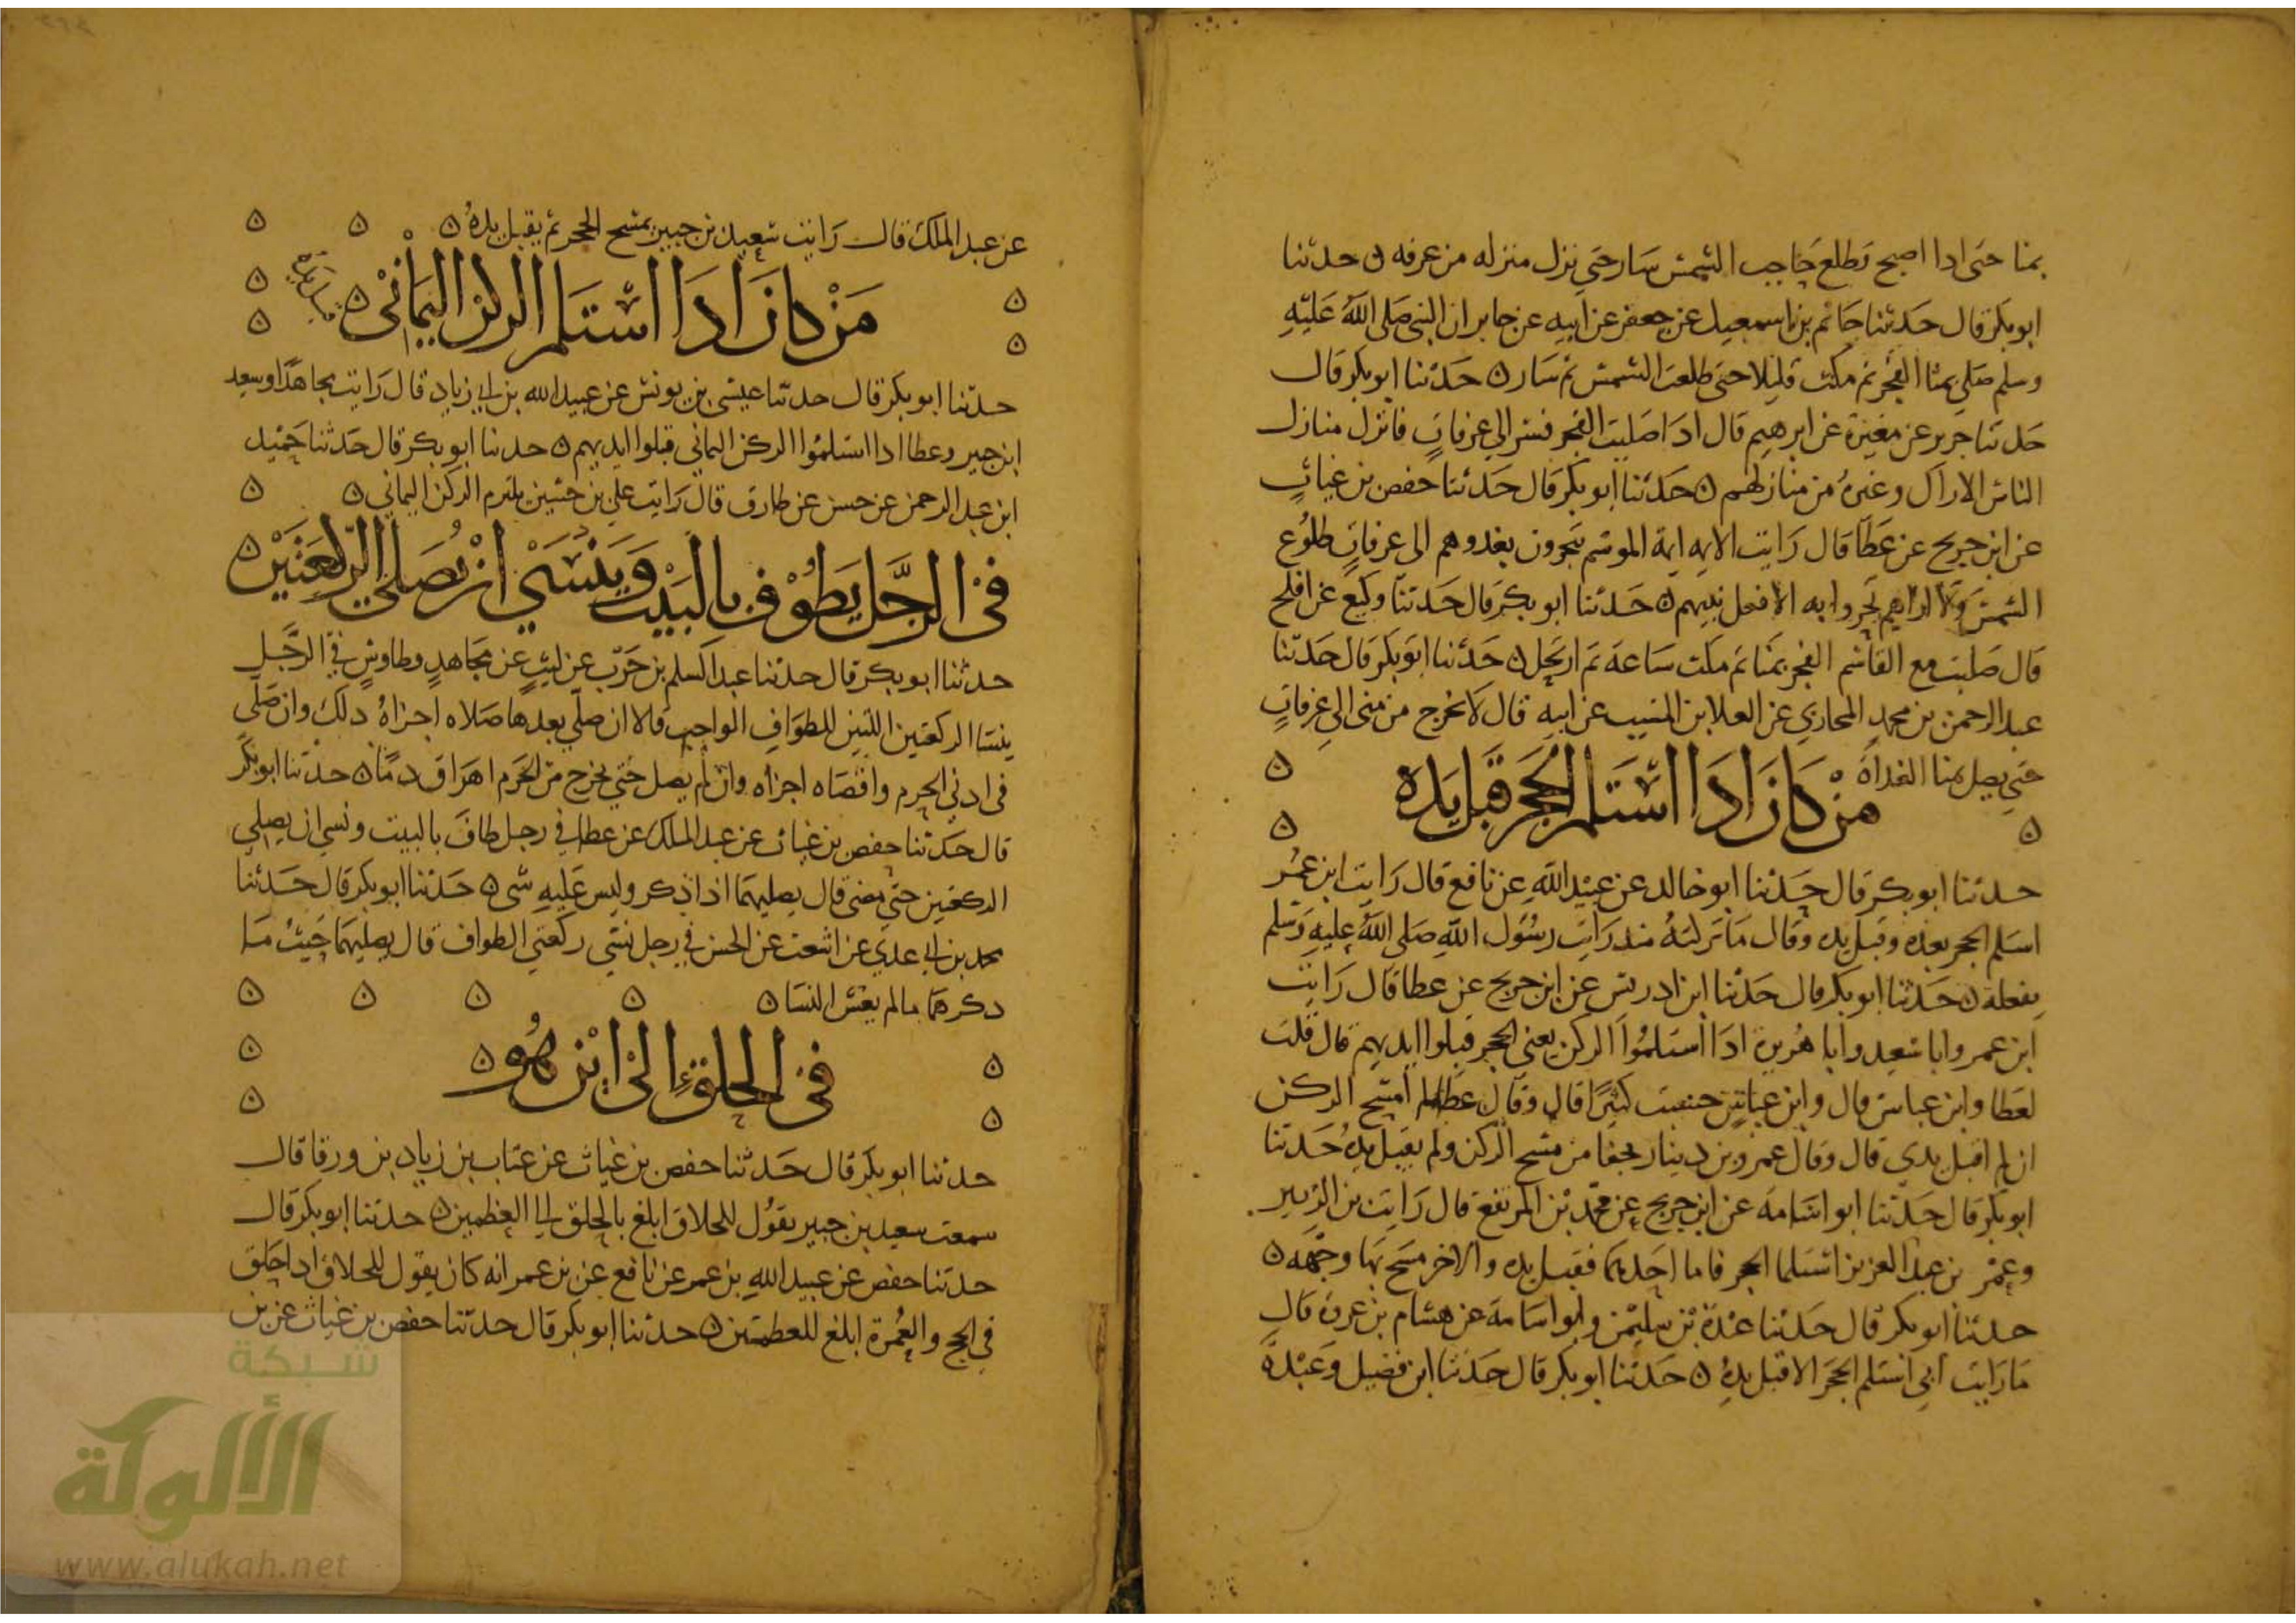 بمنا حتى ادا اصبح وطلع حاجب الشمس سار حتى نزل منزله من عرفه ن حدثنا
ابو بكر قال حدثنا حاتم بن اسمعيل عن جعفر عن ابيه عن جابر ان النبى صلى الله عليه
وسلم صلى بمنا الفجر ثم مكث قليلا حتى طلعت الشمس ثم سار ن حدثنا ابو بكر قال
حدثنا جرير عن مغيرة عن ابرهيم قال ادا صليت الفجر فسر الى عرفات فانزل منازل
الناس الاراك وغيره من منازلهم ن حدثنا ابو بكر قال حدثنا حفص بن غياث
عن ابن جريج عن عطا قال رايت الايمه ايمة الموسم يتحرون بغدوهم الى عرفات طلوع
الشمس ولا اراهم تحروا به الا فعل نبيهم ن حدثنا ابو بكر قال حدثنا وكيع عن افلح
قال صليت مع القاسم الفجر بمنا ثم مكث ساعة ثم ارتحل ن حدثنا ابو بكر قال حدثنا
عبد الرحمن بن محمد المحاربي عن العلا بن المسيب عن ابيه قال لا تخرج من منى الى عرفات
حتى يصلى بمنا الغداة
من كان ادا استلم الحجر قبل يده
حدثنا ابو بكر قال حدثنا ابو خالد عن عبيد الله عن نافع قال رايت ابن عمر
استلم الحجر بيده وقبل يده وقال ما تركته مند رايت رسول الله صلى الله عليه وسلم
يفعله ن حدثنا ابو بكر قال حدثنا ابن ادريس عن ابن جريج عن عطا قال رايت
ابن عمر وابا سعيد وابا هريرة ادا استلموا الركن يعنى الحجر قبلوا ايديهم قال قلت
لعطا وابن عباس قال وابن عباس حسبت كثيرا قال وقال عطا لم امسح الركن
ان لم اقبل يدي قال وقال عمرو بن دينار جفا من مسح الركن ولم يقبل يده حدثنا
ابو بكر قال حدثنا ابو اسامة عن ابن جريج عن محمد بن المرتفع قال رايت بن الزبير
وعمر بن عبد العزيز استلما الحجر فاما احدهما فقبل يده والاخر مسح بها وجهه ن
حدثنا ابو بكر قال حدثنا عبدة بن سليمن وابو اسامة عن هشام بن عروة قال
ما رايت ابي استلم الحجر الا قبل يده ن حدثنا ابو بكر قال حدثنا ابن فضيل وعبدة
عن عبد الملك قال رايت سعيد بن جبير يمسح الحجر ثم يقبل يده ن
من كان ادا استلم الركن اليماني ن
قبل يده
حدثنا ابو بكر قال حدثنا عيسى بن يونس عن عبيد الله بن ابي زياد قال رايت مجاهدا وسعيد
ابن جبير وعطا ادا استلموا الركن اليماني قبلوا ايديهم ن حدثنا ابو بكر قال حدثنا حميد
ابن عبد الرحمن عن حسن عن طارق قال رايت علي بن حسين يلتزم الركن اليماني ن
في الرجل يطوف بالبيت وينسي ان يصلي الركعتين ن
حدثنا ابو بكر قال حدثنا عبد السلم بن حرب عن ليث عن مجاهد وطاوس في الرجل
ينسا الركعتين اللتين للطواف الواجب قالا ان صلى بعدها صلاه اجزاه دلك وان صلى
في ادني الحرم واقصاه اجزاه وان لم يصل حتي يخرج من الحرم اهراق دما ن حدثنا ابو بكر
قال حدثنا حفص بن غياث عن عبد الملك عن عطا في رجل طاف بالبيت ونسي ان يصلي
الركعتين حتي مضى قال يصليهما اذا ذكر وليس عليه شى ن حدثنا ابو بكر قال حدثنا
محمد بن ابي عدي عن اشعث عن الحسن في رجل نسي ركعتي الطواف قال يصليهما حيث ما
دكرهما مالم يغش النسا ن
في الحلق الي اين هو ن
حدثنا ابو بكر قال حدثنا حفص بن غياث عن عتاب بن زياد بن ورقا قال
سمعت سعيد بن جبير يقول للحلاق ابلغ بالحلق الى العظمين ن حدثنا ابو بكر قال
حدثنا حفص عن عبيد الله بن عمر عن نافع عن بن عمر انه كان يقول للحلاق ادا حلق
في الحج والعمرة ابلغ للعظمين ن حدثنا ابو بكر قال حدثنا حفص بن غياث عن بن
شبكة
الألوكة
www.alukah.net